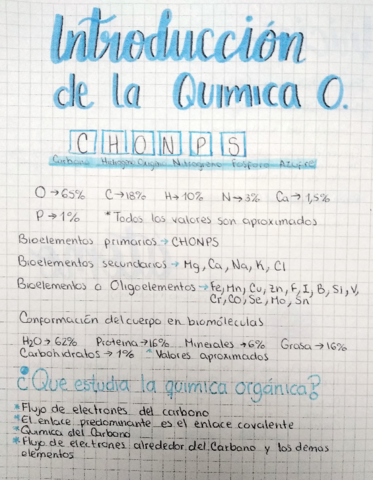 Introducción
de la Quimica O.
C H O N P S
Carbono Hidrogeno Oxigeno Nitrogeno Fosforo Azufre
O → 65% C → 18% H → 10% N → 3% Ca → 1,5%
P → 1% * Todos los valores son aproximados
Bioelementos primarios → CHONPS
Bioelementos secundarios → Mg, Ca, Na, K, Cl
Bioelementos o Oligoelementos → Fe, Mn, Cu, Zn, F, I, B, Si, V,
Cr, CO, Se, Mo, Sn
Conformación del cuerpo en biomóleculas
H2O → 62% Proteina → 16% Minerales → 6% Grasa → 16%
Carbohidratos → 1% * Valores aproximados
¿Que estudia la quimica orgánica?
* Flujo de electrones del carbono
* El enlace predominante es el enlace covalente
* Quimica del Carbono
* Flujo de electrones alrededor del Carbono y los demas
elementos